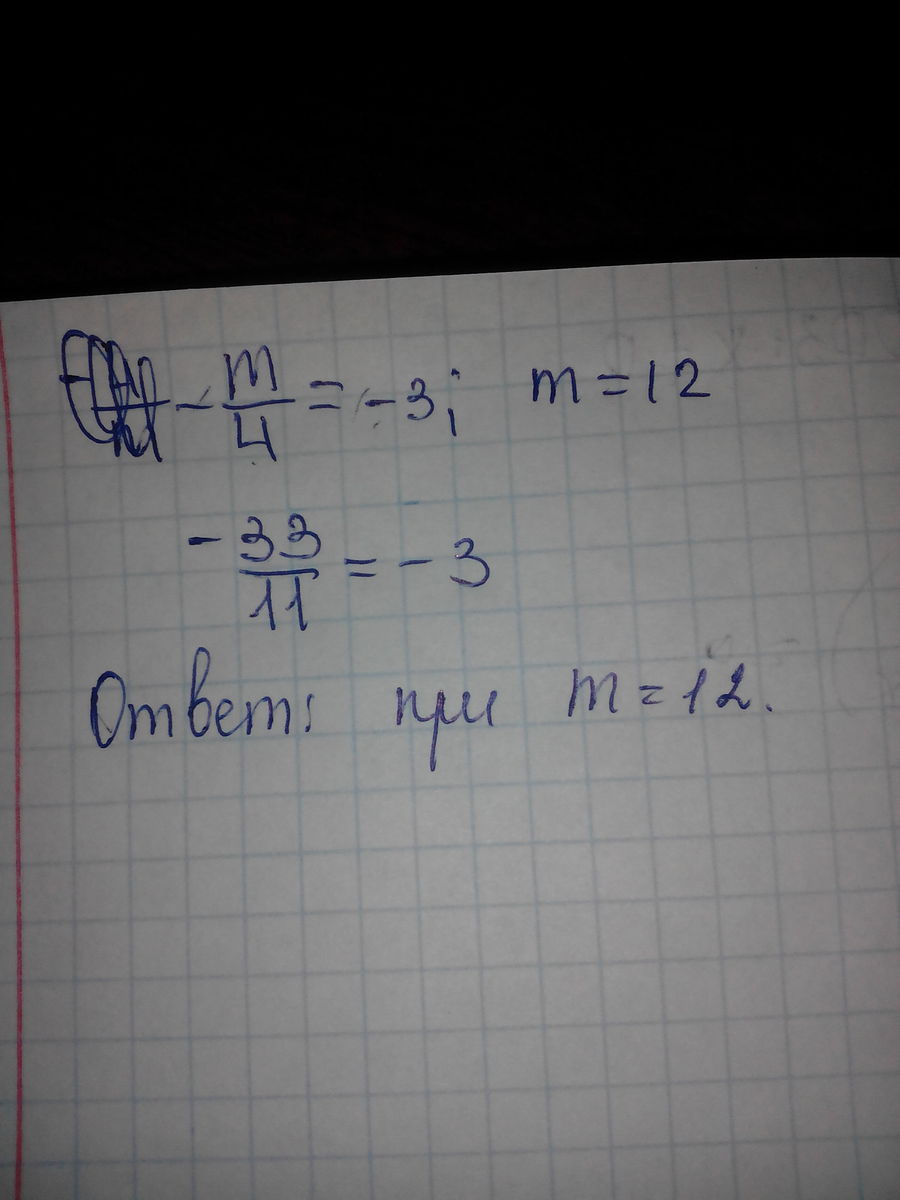 - m/4 = -3; m = 12
- 33/11 = - 3
Ответ: при m = 12.